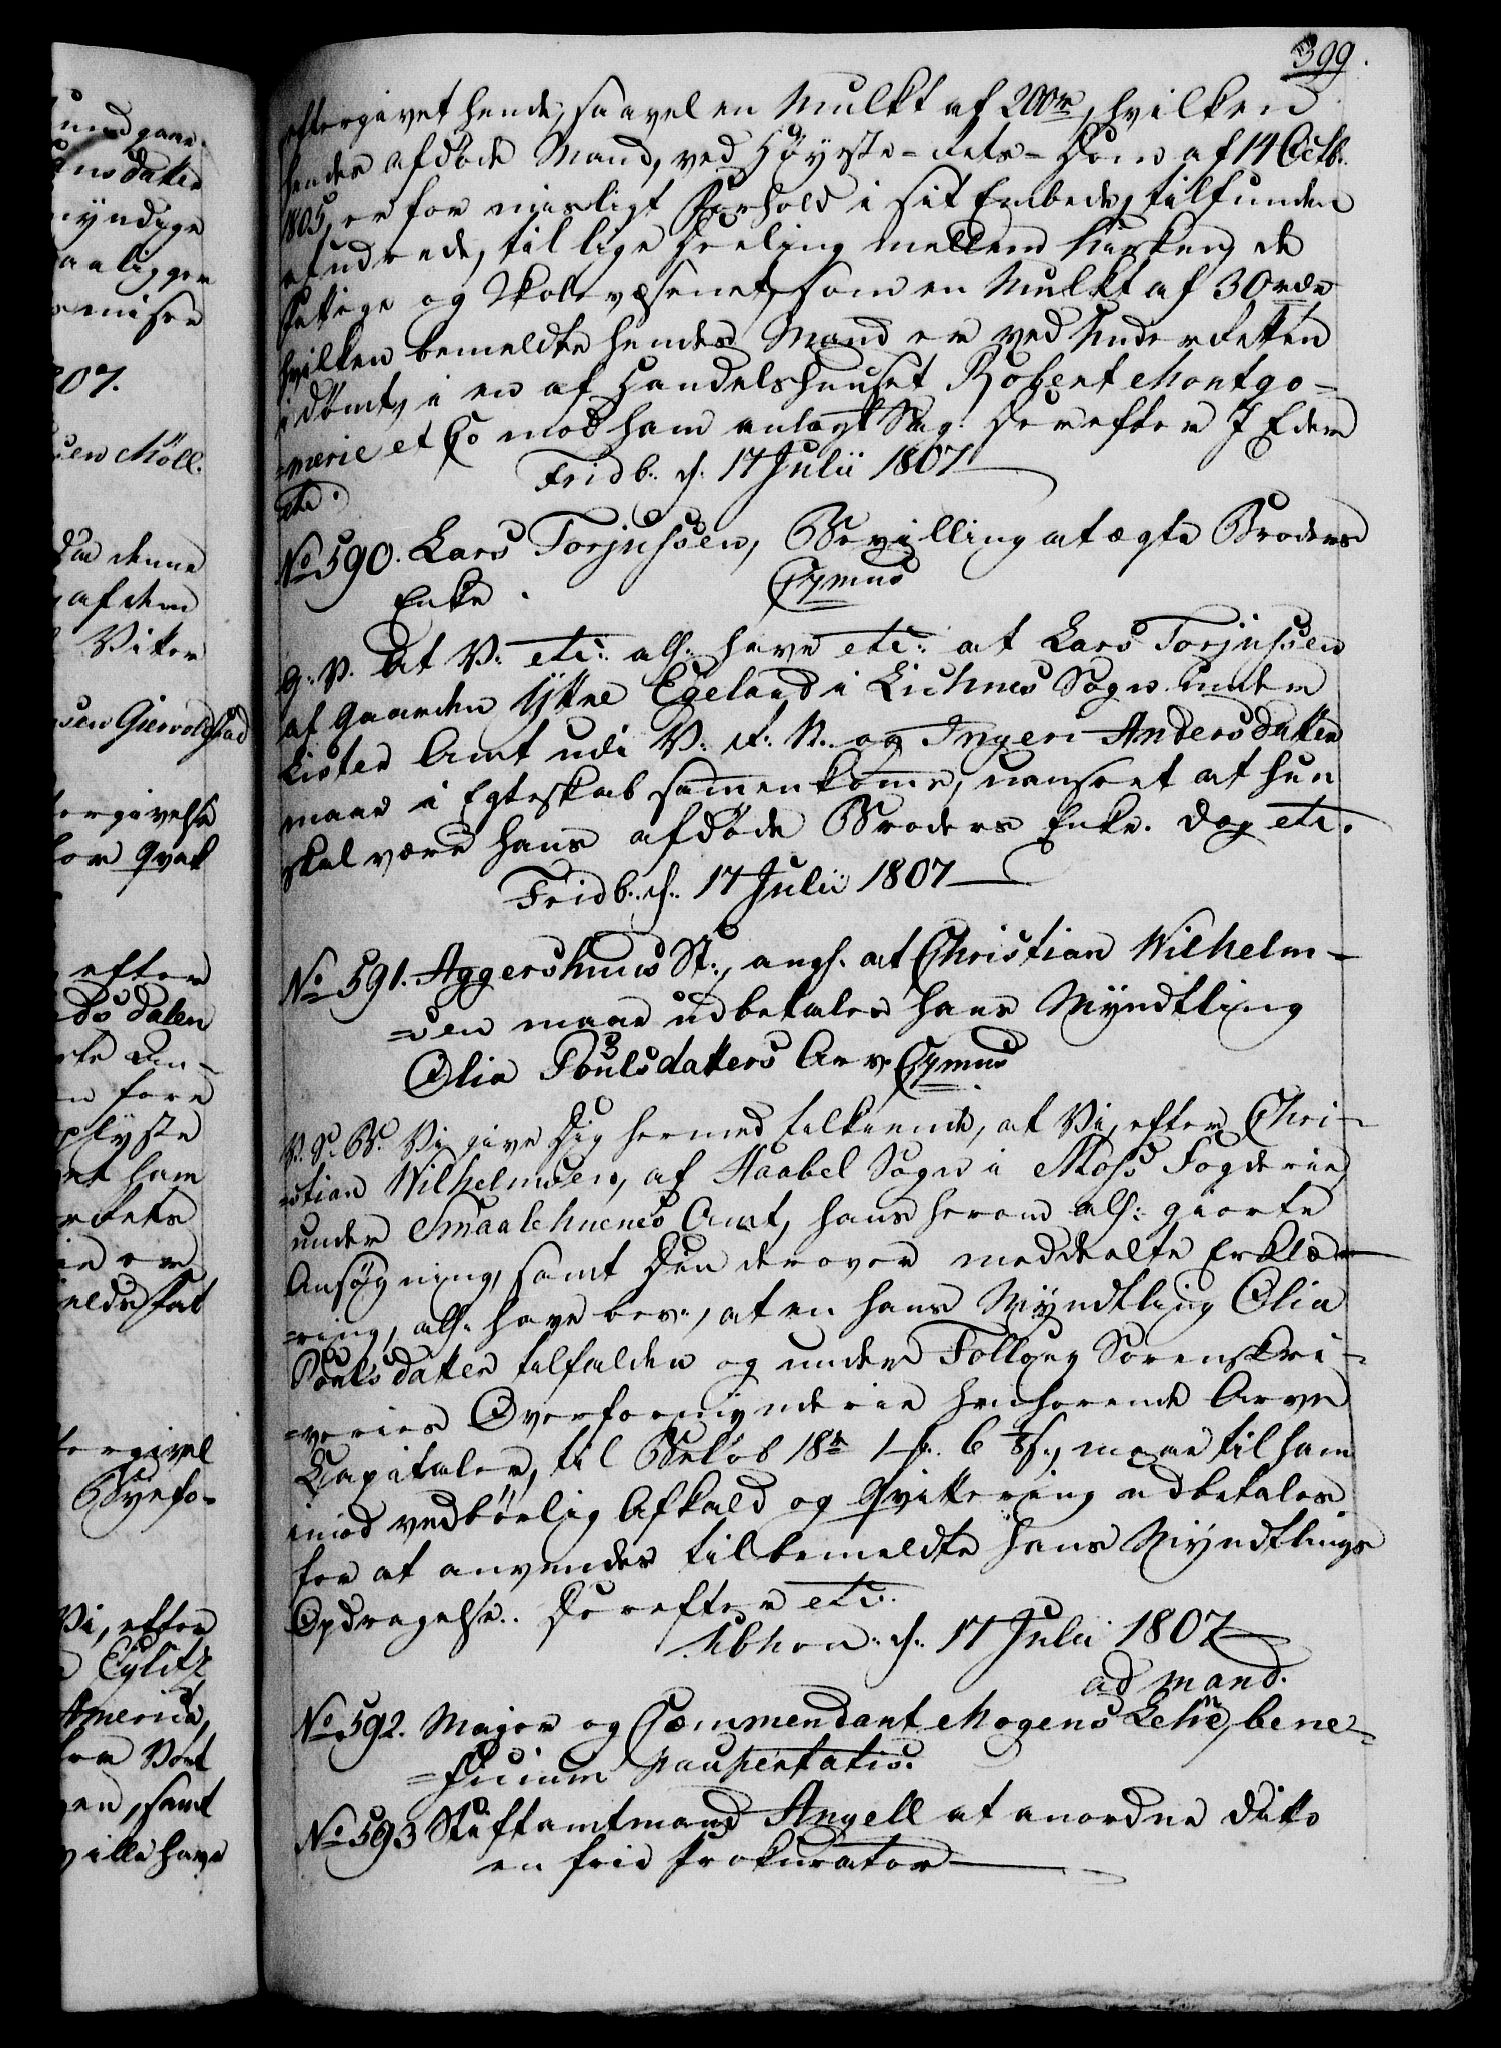 399.
eftergivet hende, saavel en Mulkt af 200 rd, hvilken
hendes afdøde Mand, ved Høyeste-Rets-Dom af 14 Octb.
1805, er for misligt Forhold i sit Embede, tilfunden
at udrede, til lige Deeling mellem Kirken, de
Fattige og Skolevæsenet, som en Mulkt af 30 rdr
hvilken bemeldte hendes Mand er ved Underretten
idømt, i en af Handelshuuset Robert Montgo-
=merie et Co mod ham anlagt Sag. Derefter I Eder
etc.
Fridb. d. 17 Julii 1807
No 590. Lars Torjussen, Bevilling at ægte Broders
Enke. Gymus
G. V. At V. etc. als. have etc. at Lars Torjussen
af Gaarden Ytre Egeland i Liehnes Sogn under
Lister Amt udi V. R. N. og Ingeri Andersdatter
maae i Egteskab sammenkomme, uanseet at hun
skal være hans afdøde Broders Enke. Dog etc.
Fridb. d. 17 Julii 1807
No 591. Aggershuus St., ang. at Christian Wilhelm-
=sen maae udbetales hans Myndtling
Olia Poulsdatters Arv. Gymus
V. G. B. Vi give Dig hermed tilkiende, at Vi, efter Chri-
=stian Wilhelmsen, af Haabel Sogn i Moss Fogderie
under Smaalehnenes Amt, hans herom als. giorte
Ansøgning, samt Din derover meddeelte Erklæ-
=ring, als. have bev., at en hans Myndtling Olia
Poulsdatter tilfalden og under Folloug Sorenskri-
=veries Overformynderie henhørende Arve
Capitaler, til Beløb 18 rd 1 . 6 s., maae til ham
imod vedbørlig Afkald og Qvittering udbetales
for at anvendes til bemeldte hans Myndtlings
Opdragelse. Derefter etc.
Kbhvn. d. 17 Julii 1807
ad mand.
No 592. Major og Commendant Mogens Lehn, bene-
=ficium paupertatis.
No 593 Stiftamtmand Angell at anordne ditto
en frie Prokurator